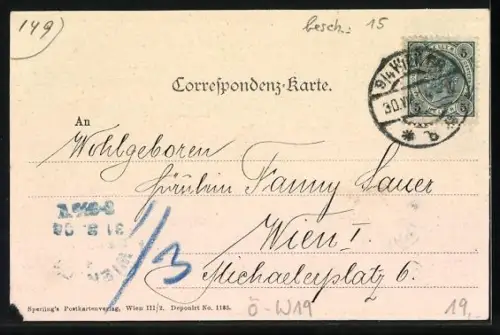 149)
besch. 15
5 5
30.V
Correspondenz-Karte.
An
Wohlgeboren
Fräulein Fanny Sauer
Wien I
Michaelerplatz 6.
1/3
31. 8. 04
WIEN
Sperling's Postkartenverlag, Wien III/2. Deponirt No. 1185.
Ö-W19
19,-